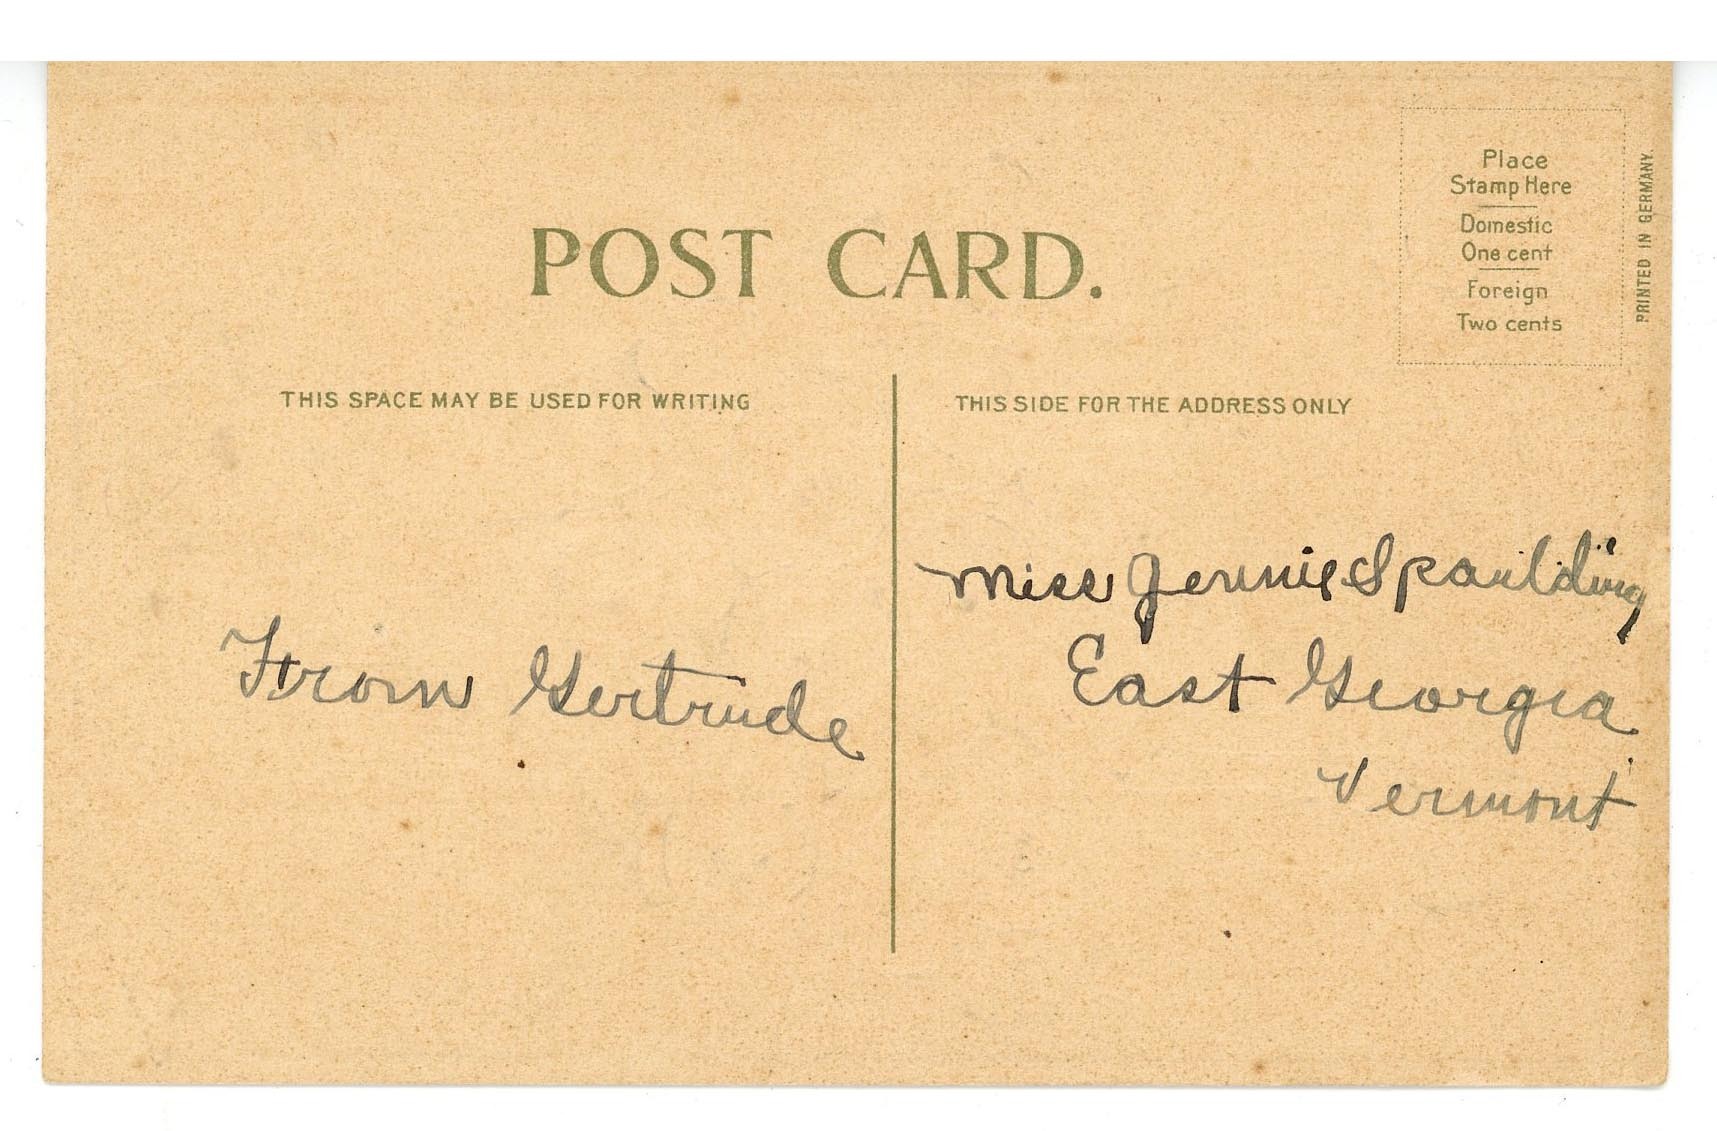 POST CARD.
Place
Stamp Here
Domestic
One cent
Foreign
Two cents
PRINTED IN GERMANY.
THIS SPACE MAY BE USED FOR WRITING
THIS SIDE FOR THE ADDRESS ONLY
From Gertrude
Miss Jennie Spaulding
East Georgia
Vermont